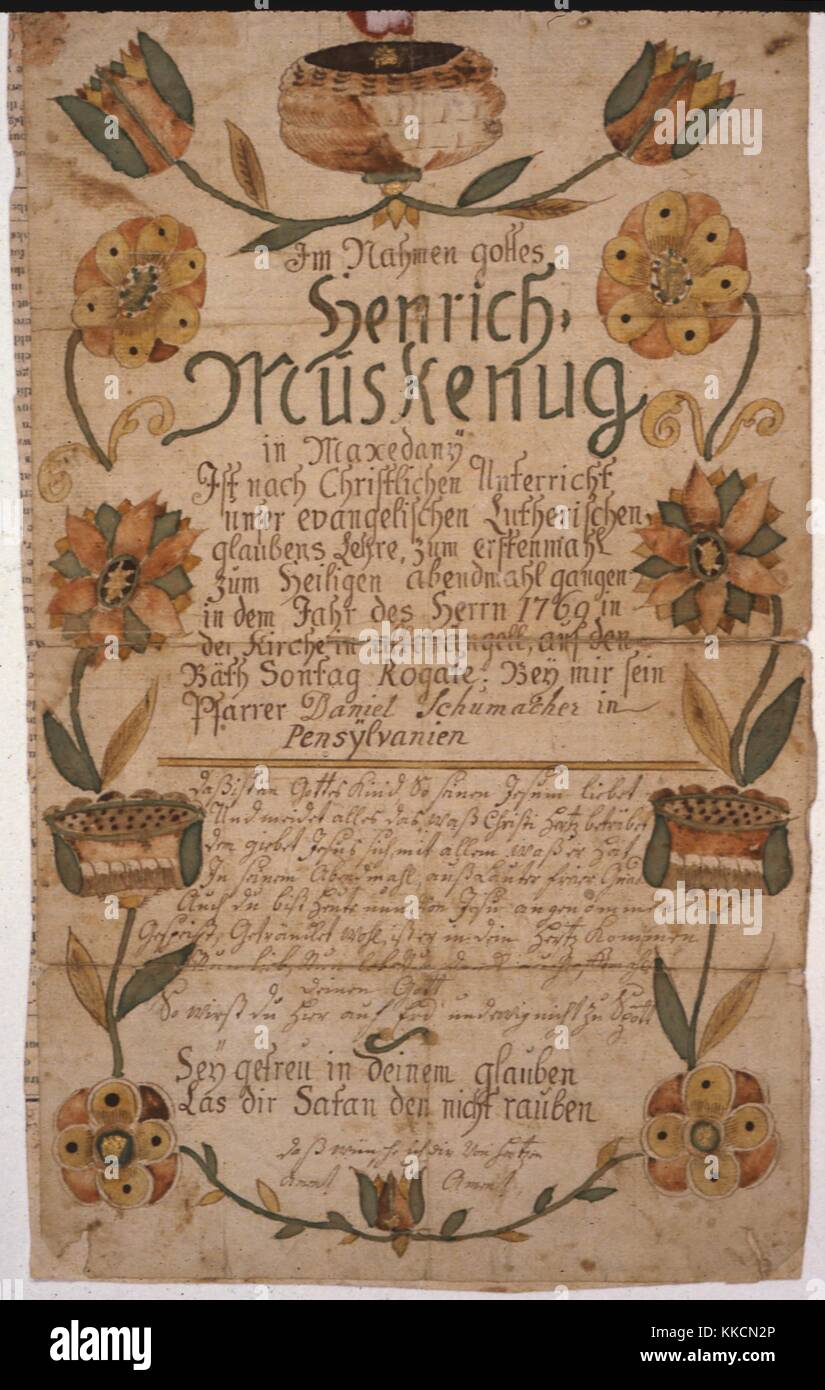 Im Nahmen gottes
Henrich,
Müskenug
in Maxedanÿ
Ist nach Christlichen Unterricht
unßr evangelischen Lutherischen
glaubens Lehre, zum erstenmahl
zum Heiligen abendmahl gangen
in dem Jahr des Herrn 1769 in
der Kirche in auf den
Bäth Sontag Rogate: Beÿ mir sein
Pfarrer Daniel Schumacher in
Pensÿlvanien
Daß ist ein Gottes Kind So seinen Jesum liebet
Und meidet alles das, waß Christi Hertz betrübet
dem giebet Jesus sich mit allem waß er Hat
In seinem Abendmahl, auß Lauter freier Gnad
Auch du bist Heute nun von Jesu angenommen
Gespeist, Geträncket wohl, ist er in dein Hertz Kommen
Nun lieb, Nun
deinen Gott
So wirst du Hier auf Erd und ewig nicht zu Spott
Seÿ getreu in deinem glauben
Las dir Satan den nicht rauben
daß wünsche ich dir von Hertzen
Amen Amen
alamy
Image ID: KKCN2P
www.alamy.com